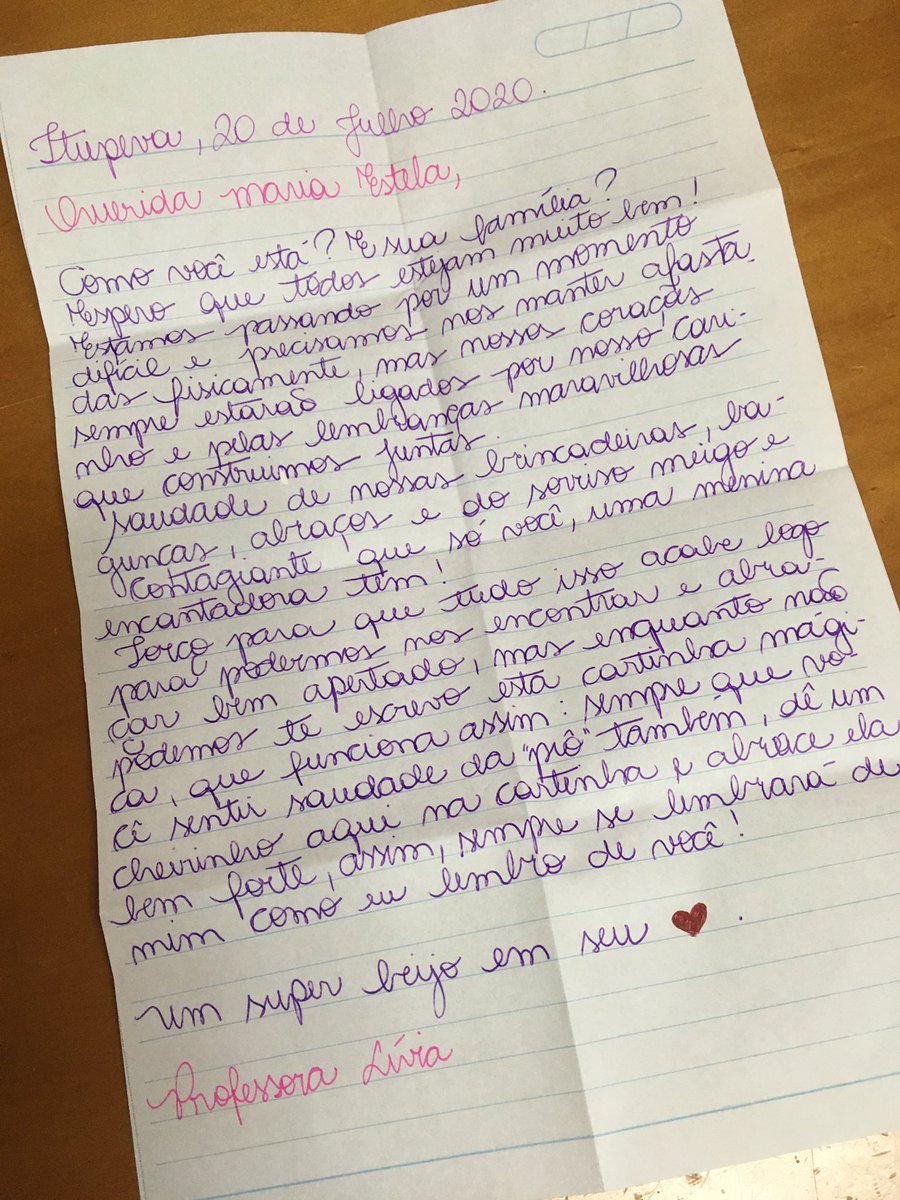 Itupeva, 20 de Julho 2020.
Querida Maria Estela,
Como você está? E sua família?
Espero que todos estejam muito bem!
Estamos passando por um momento
difícil e precisamos nos manter afasta
das fisicamente, mas nossos corações
sempre estarão ligados por nosso cari-
nho e pelas lembranças maravilhosas
que construimos juntas.
saudade de nossas brincadeiras, ba-
gunças, abraços e do sorriso meigo e
contagiante que só você, uma menina
encantadora têm!
Torço para que tudo isso acabe logo
para podermos nos encontrar e abra-
çar bem apertado, mas enquanto não
podemos te escrevo esta cartinha mági-
ca, que funciona assim: sempre que vo-
cê sentir saudade da "prô" também, dê um
cheirinho aqui na cartinha e abrace ela
bem forte, assim, sempre se lembrará de
mim como eu lembro de você!
Um super beijo em seu ♥.
Professora Lívia